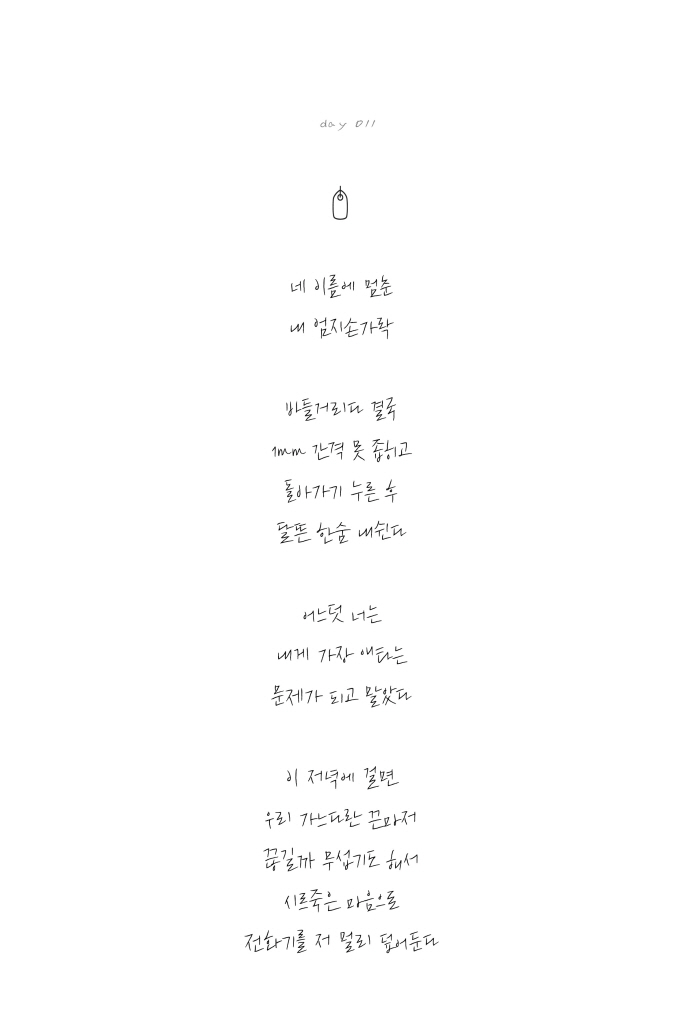 day 011
네 이름에 멈춘
내 엄지손가락
바들거리다 결국
1mm 간격 못 좁히고
돌아가기 누른 후
달뜬 한숨 내쉰다
어느덧 너는
내게 가장 애타는
문제가 되고 말았다
이 저녁에 걸면
우리 가느다란 끈마저
끊길까 무섭기도 해서
시르죽은 마음으로
전화기를 저 멀리 덮어둔다